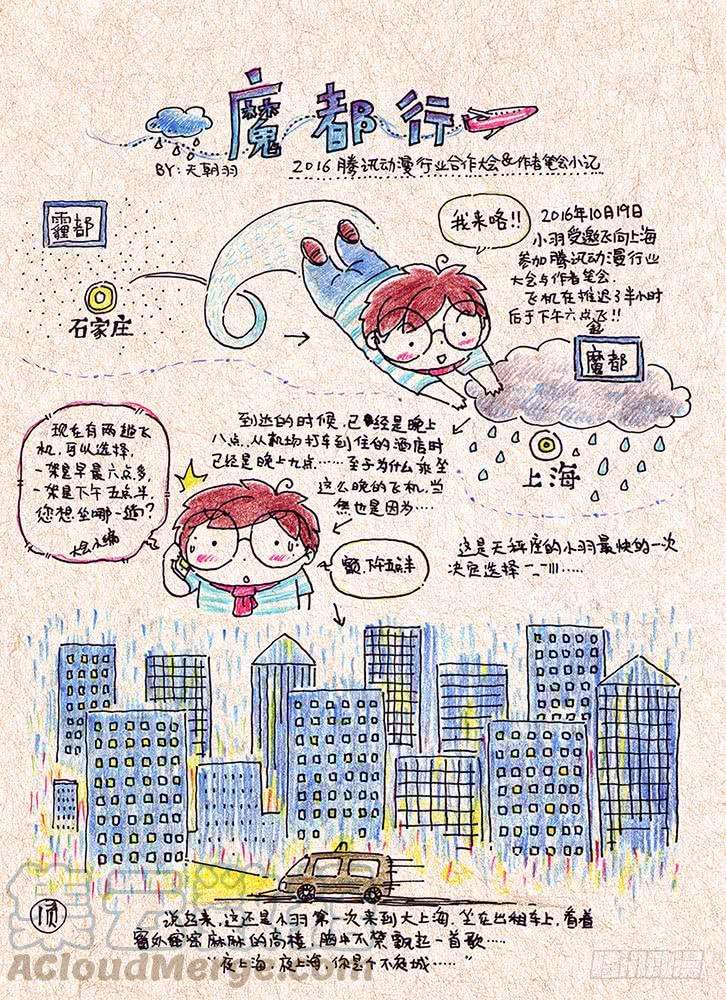 魔都行
BY:天朝羽
2016腾讯动漫行业合作大会&作者笔会小记
霾都
石家庄
我来咯!!
2016年10月19日
小羽受邀飞向上海
参加腾讯动漫行业
大会与作者笔会.
飞机在推迟了半小时
后于下午六点起飞!!
魔都
上海
现在有两趟飞
机,可以选择,
一架是早晨六点多,
一架是下午五点半,
您想坐哪一趟?
大会小编
到达的时候,已经是晚上
八点..从机场打车到住的酒店时
已经是晚上九点……至于为什么乘坐
这么晚的飞机,当
然也是因为……
额,下午五点半
这是天秤座的小羽最快的一次
决定选择 ¯_¯|||……
说起来,这还是小羽第一次来到大上海,坐在出租车上,看着
窗外密密麻麻的高楼,胸中不禁飘起一首歌……
“夜上海,夜上海,你是个不夜城……”
ACloudMerge.com